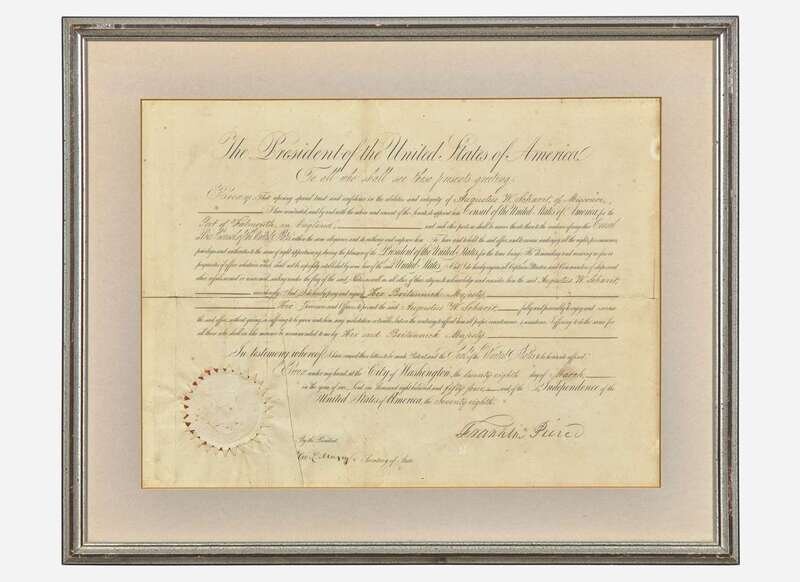 The President of the United States of America,
To all who shall see these presents greeting.
Know Ye, That reposing special trust and confidence in the abilities and integrity of Augustus W. Scharit, of Missouri,
I have nominated, and by and with the advice and consent of the Senate do appoint him Consul of the United States of America, for the
Port of Falmouth, in England, and such other parts as shall be nearer thereto than to the residence of any other Consul
The President of the United States for the time being. He demanding and receiving no fees or
perquisites of office whatever, which shall not be expressly established by some law of the said United States. And I do hereby enjoin all Captains, Masters, and Commanders of ships and
other vessels, armed or unarmed, sailing under the flag of the said States, as well as all other of their citizens, to acknowledge and consider him the said Augustus W. Scharit,
accordingly. And I do hereby pray and request Her Britannick Majesty,
Her Governors and Officers to permit the said Augustus W. Scharit fully and peaceably to enjoy and exercise
the said office, without giving, or suffering to be given unto him, any molestation or trouble, but on the contrary to afford him all proper countenance and assistance. I offering to do the same for
all those who shall in like manner be recommended to me by Her said Britannick Majesty.
In testimony whereof, I have caused these letters to be made Patent, and the Seal of the United States to be hereunto affixed.
Given under my hand, at the City of Washington, the twenty eighth day of March,
in the year of our Lord one thousand eight hundred and fifty four, and of the Independence of the
United States of America, the Seventy eighth.
Franklin Pierce
By the President,
W. L. Marcy, Secretary of State.